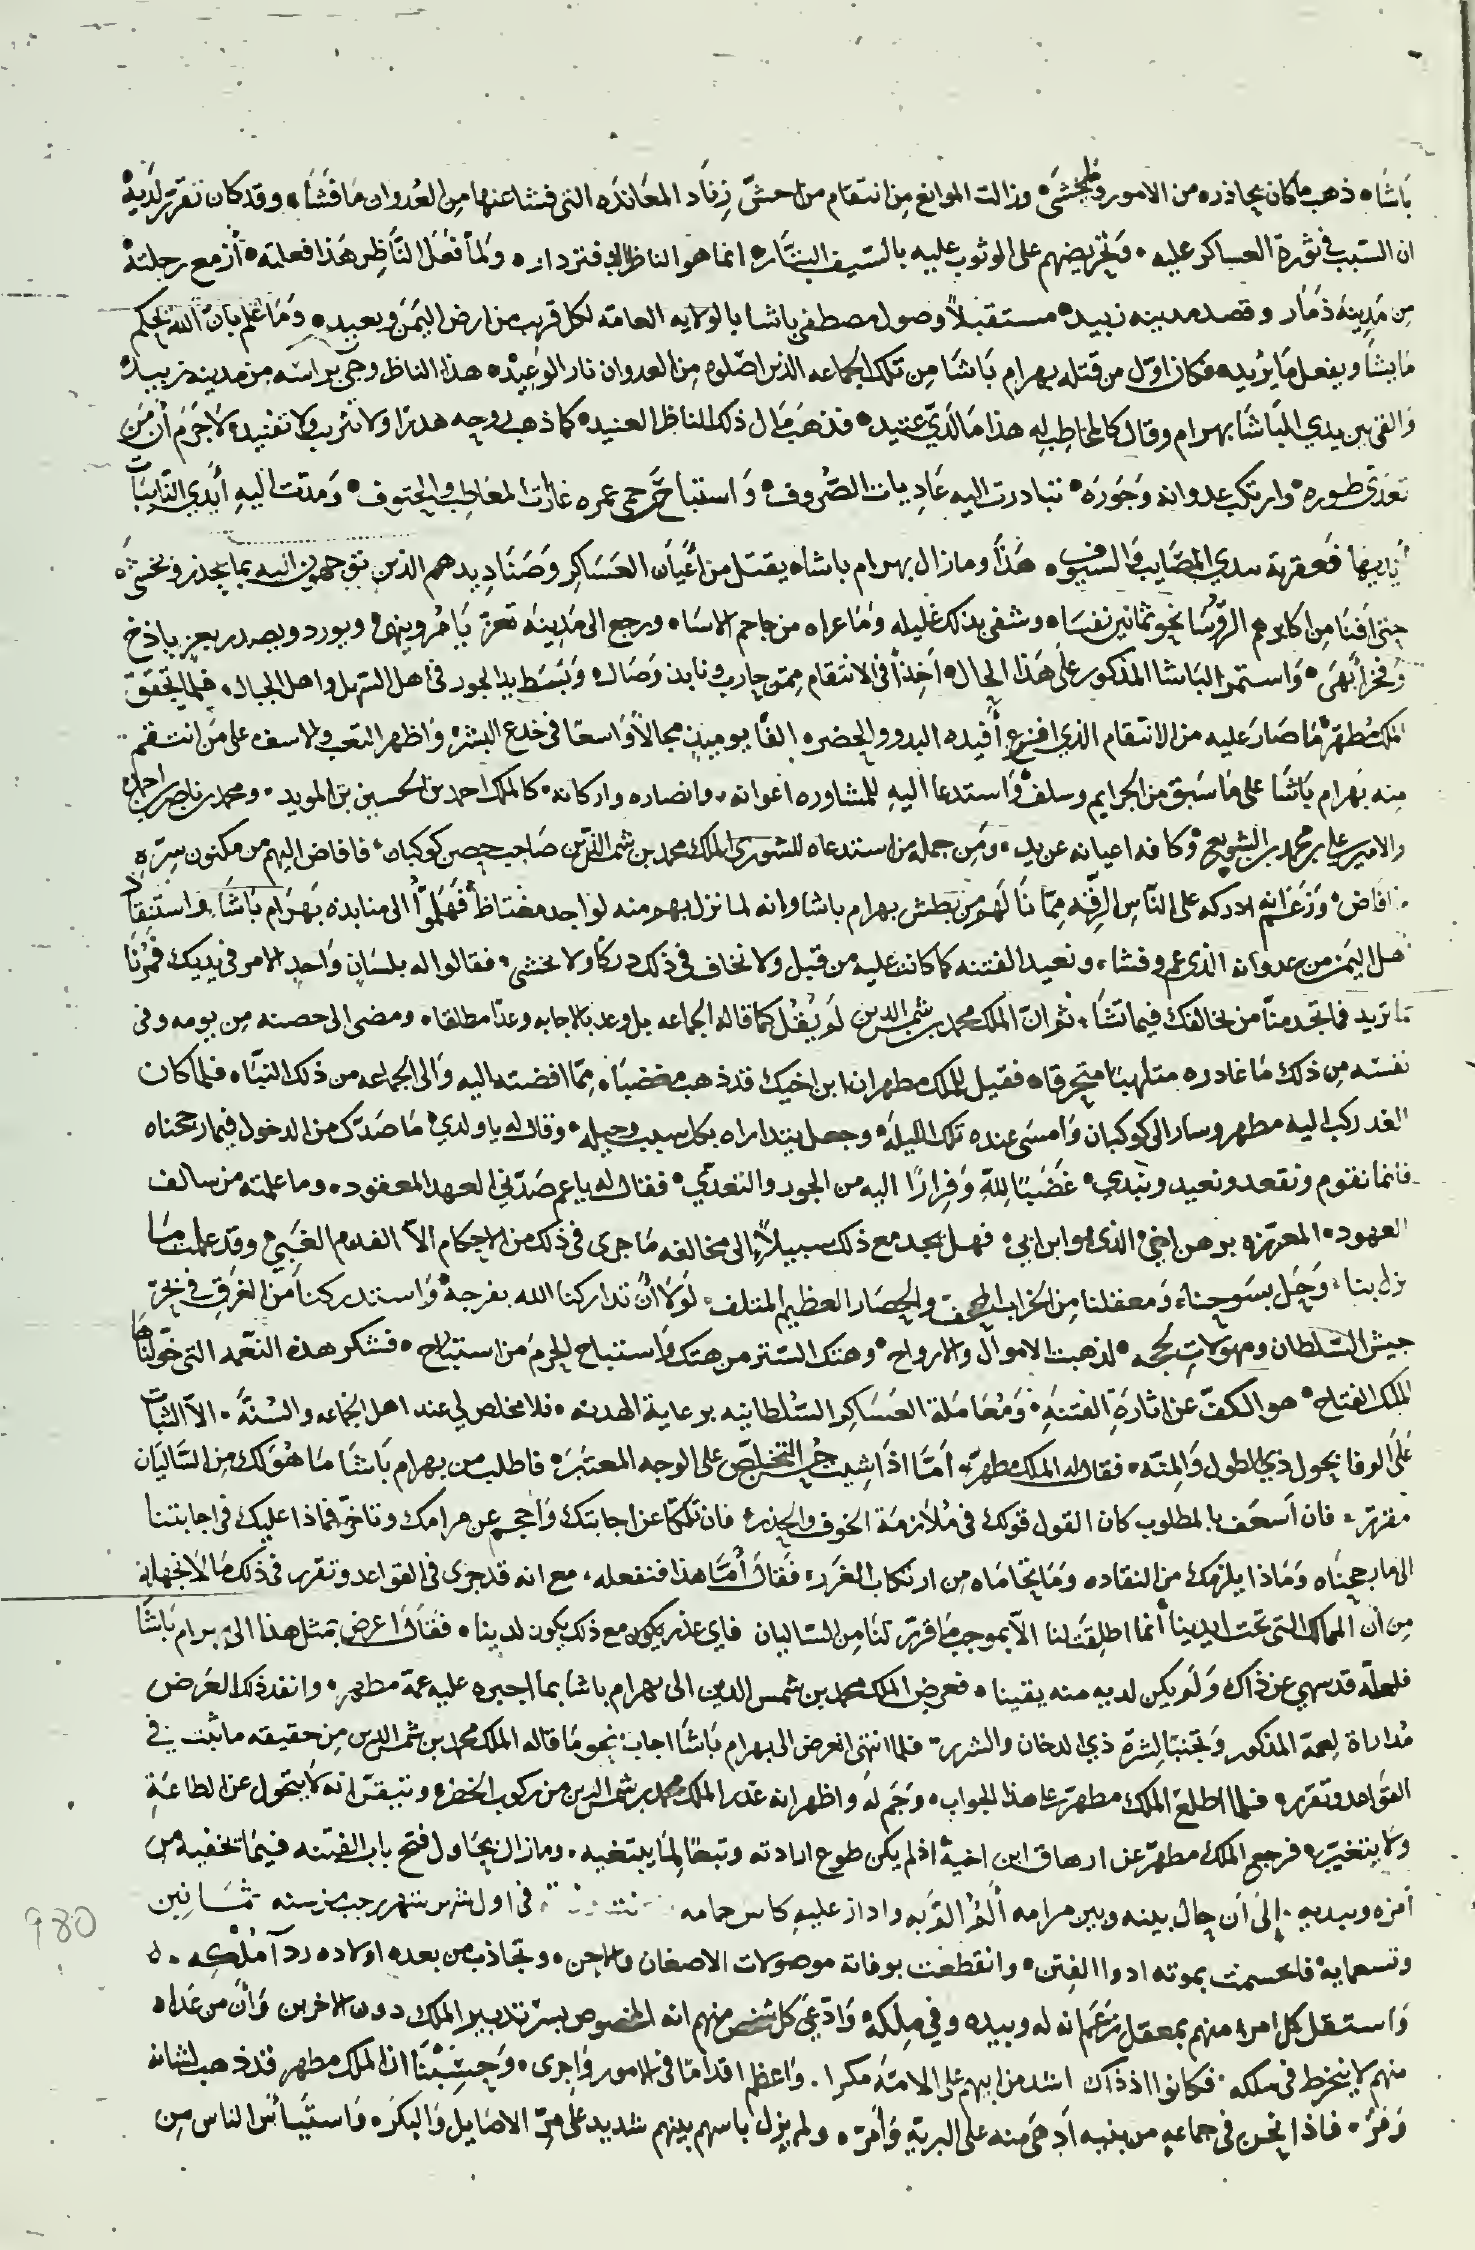 باشاه ذهب ما كان يحاذره من الامور ويخشى وزالت الموانع من انتقام من احش زناد المعانده التي فشا عنها من العدوان ما فشا وقد كان تقرر لديه
ان السبب في ثورة العساكر عليه وتحريضهم على الوثوب عليه بالسيف البتار انما هو الناظر الدفتردار ولما فعل الناظر هذا فعلته أزمع رحلته
من مدينة ذمار وقصد مدينه زبيد مستقبلاً وصول مصطفى باشا بالولايه العامه لكل قريب من ارض اليمن وبعيد وما علم بان الله يحكم
ما يشا ويفعل ما يريد فكان اول من قتله بهرام باشا من تلك الجماعه الذين اصلوه من العدوان نار الوعيد هذا الناظر وجي براسه من مدينه زبيد
والقي بين يدي الباشا بهرام وقال كالمخاطب له هذا ما لدي عتيد فذهب مال ذلك الناظر العنيد كما ذهب روحه هدرا ولا تثريب ولا تفنيد لا جرم أن من
تعدى طوره وارتكب عدوانه وجوره تبادرت اليه عاديات الصروف واستباح حمى عمره غارات المعاطب والحتوف ومدت اليه أيدي النايبات
أيديها فعقرته بيدي المصايب والسيوف هذا وما زال بهرام باشا يقتل من أعيان العساكر وصناديدهم الذين توجهوا اليه بما يحذر ويخشى
حتى افنا من اكابرهم الرؤسا نحو ثمانين نفسا وشفى بذلك غليله وما عراه من جاحم الاسا ورجع الى مدينة تعز يامر وينهى ويورد ويصدر بعز باذخ
وفخر أبهى واستمر الباشا المذكور على هذا الحال اخذاً في الانتقام ممن حارب ونابذ وصال وبسط يد الجور في اهل السهل واهل الجبال فلما تحقق
الملك مطهر ما صار عليه من الانتقام الذي افزع أفيده البدو والحضر الفا يوميذ مجالاً واسعا في خدع البشر واظهر التعب والاسف على من انتقم
منه بهرام باشا على ما سبق من الجرايم وسلف واستدعا اليه للمشاوره اعوانه وانصاره واركانه كالملك احمد بن الحسين بن المويد ومحمد بن ناصر بن احمد
والامير علي بن محمد بن الشويع وكافه اعيانه عن يد ومن جمله من استدعاه للشورى الملك محمد بن شمس الدين صاحب حصن كوكبان فافاض اليهم من مكنون سره
ما افاض وزعم انه ادركه على الناس الرقه مما نالهم من بطش بهرام باشا وانه لما نزل بهم منه لواجد مغتاظ فهلموا الى منابذه بهرام باشا واستنقاذ
اهل اليمن من عدوانه الذي عم وفشا ونعيد الفتنه كما كانت عليه من قبل ولا نخاف في ذلك دركا ولا نخشى فقالوا له بلسان واحد الامر في يديك فمرنا
بما تريد فما تجد منا من يخالفك فيما تشا ثم ان الملك محمد بن شمس الدين لم يقل كما قاله الجماعه بل وعد بالاجابه وعدا مطلقا ومضى الى حصنه من يومه وفى
نفسه من ذلك ما غادره متلهبا متحرقا فقيل للملك مطهر ان ابن اخيك قد ذهب مغضبا مما افضته اليه والى الجماعه من ذلك النبا فلما كان
الغد ركب اليه مطهر وسار الى كوكبان وامسى عنده تلك الليله وجعل يتداراه بكل سبب وحيله وقال له يا ولدي ما صدك من الدخول فيما رجحناه
فانما نقوم ونقعد ونعيد ونبدي غضبا لله وفرارًا اليه من الجور والتعدي فقال له ياعم صدني العهد المعقود وما علمته من سالف
العهود المعززه برهن اخي الذي هو ابن ابي فهل تجد مع ذلك سبيلاً الى مخالفه ما جرى في ذلك من الاحكام الا الفدم الغبي وقد علمت ما
نزل بنا وحل بسوحنا ومعقلنا من الخراب المجحف والحصار العظيم المتلف لولا أن تداركنا الله بفرجه واستدركنا من الغرق في بحر
جيش السلطان ومهولات لججه لذهبت الاموال والارواح وهتك الستر من هتك واستباح الحرم من استباح فشكر هذه النعمه التي خولناها
الملك الفتاح هو الكف عن اثارة الفتنة ومعاملة العساكر السلطانيه برعاية الهدنه فلا مخلص لي عند اهل الجماعه والسنة الا الثبات
على الوفا بحول ذي الطول والمنه فقال له الملك مطهر أما اذا شيت حسن التخلص على الوجه المعتبر فاطلب من بهرام باشا ما هو لك من الساليان
مقرر فان اسعف بالمطلوب كان القول قولك في ملازمة الخوف والحذر فان تلكأ عن اجابتك واحجم عن مرامك وتاخر فماذا عليك في اجابتنا
الى ما رجحناه وماذا يلزمك من النقاده وما يتحاماه من ارتكاب الغرر فقال أما هذا فنفعله مع انه قد جرى في القواعد وتقرر في ذلك ما لا نجهله
من أن الممالك التي تحت ايدينا أنما اطلقت لنا الا بموجب ما قرر لنا من الساليان فاي عذر يكون مع ذلك يكون لدينا فقال اعرض بمثل هذا الى بهرام باشا
فلعله قد سهي عن ذاك ولم يكن لديه منه يقينا فعرض الملك محمد بن شمس الدين الى بهرام باشا بما اجبره عليه عمه مطهر وانفذ ذلك العرض
مداراة لعمه المذكور وتجنبا لشره ذي الدخان والشرر فلما انتهى العرض الى بهرام باشا اجاب بنحو ما قاله الملك محمد بن شمس الدين من حقيقه ما ثبت في
القواعد وتقرر فلما اطلع الملك مطهر على هذا الجواب وجم له واظهر انه عذر الملك محمد بن شمس الدين من ركوب الخطر وتيقن انه لا يتحول عن الطاعة
ولا يتغير فرجع الملك مطهر عن ارهاق ابن اخيه اذ لم يكن طوع ارادته وتبعا لما يبتغيه وما زال يحاول فتح باب الفتنه فيما تخفيه من
أمره ويبديه إلى أن حال بينه وبين مرامه ألم القربه وادار عليه كاس حمامه في اول شهر رجب من سنه ثمانين
وتسعمايه فانحسمت بموته ادوا الفتن وانقطعت بوفاته موصولات الاضغان والاحن وتجاذب من بعده اولاده ردآ ملكه
واستقل كل امرء منهم بمعقل زعم انه له وبيده وفي ملكه وادعى كل شخص منهم انه المخصوص بسر تدبير الملك دون الاخرين وأن من عداه
منهم لا ينخرط في سلكه فكانوا اذ ذاك اشد من ابيهم على الامة مكرا واعظم اقداما في الامور واجرى وحسبنا ان الملك مطهر قد ذهب لشانه
ومر فاذا نحن في جماعه من بنيه ادهى منه على البريه وأمر ولم يزل باسهم بينهم شديد على مر الاصايل والبكر واستيأس الناس من
980